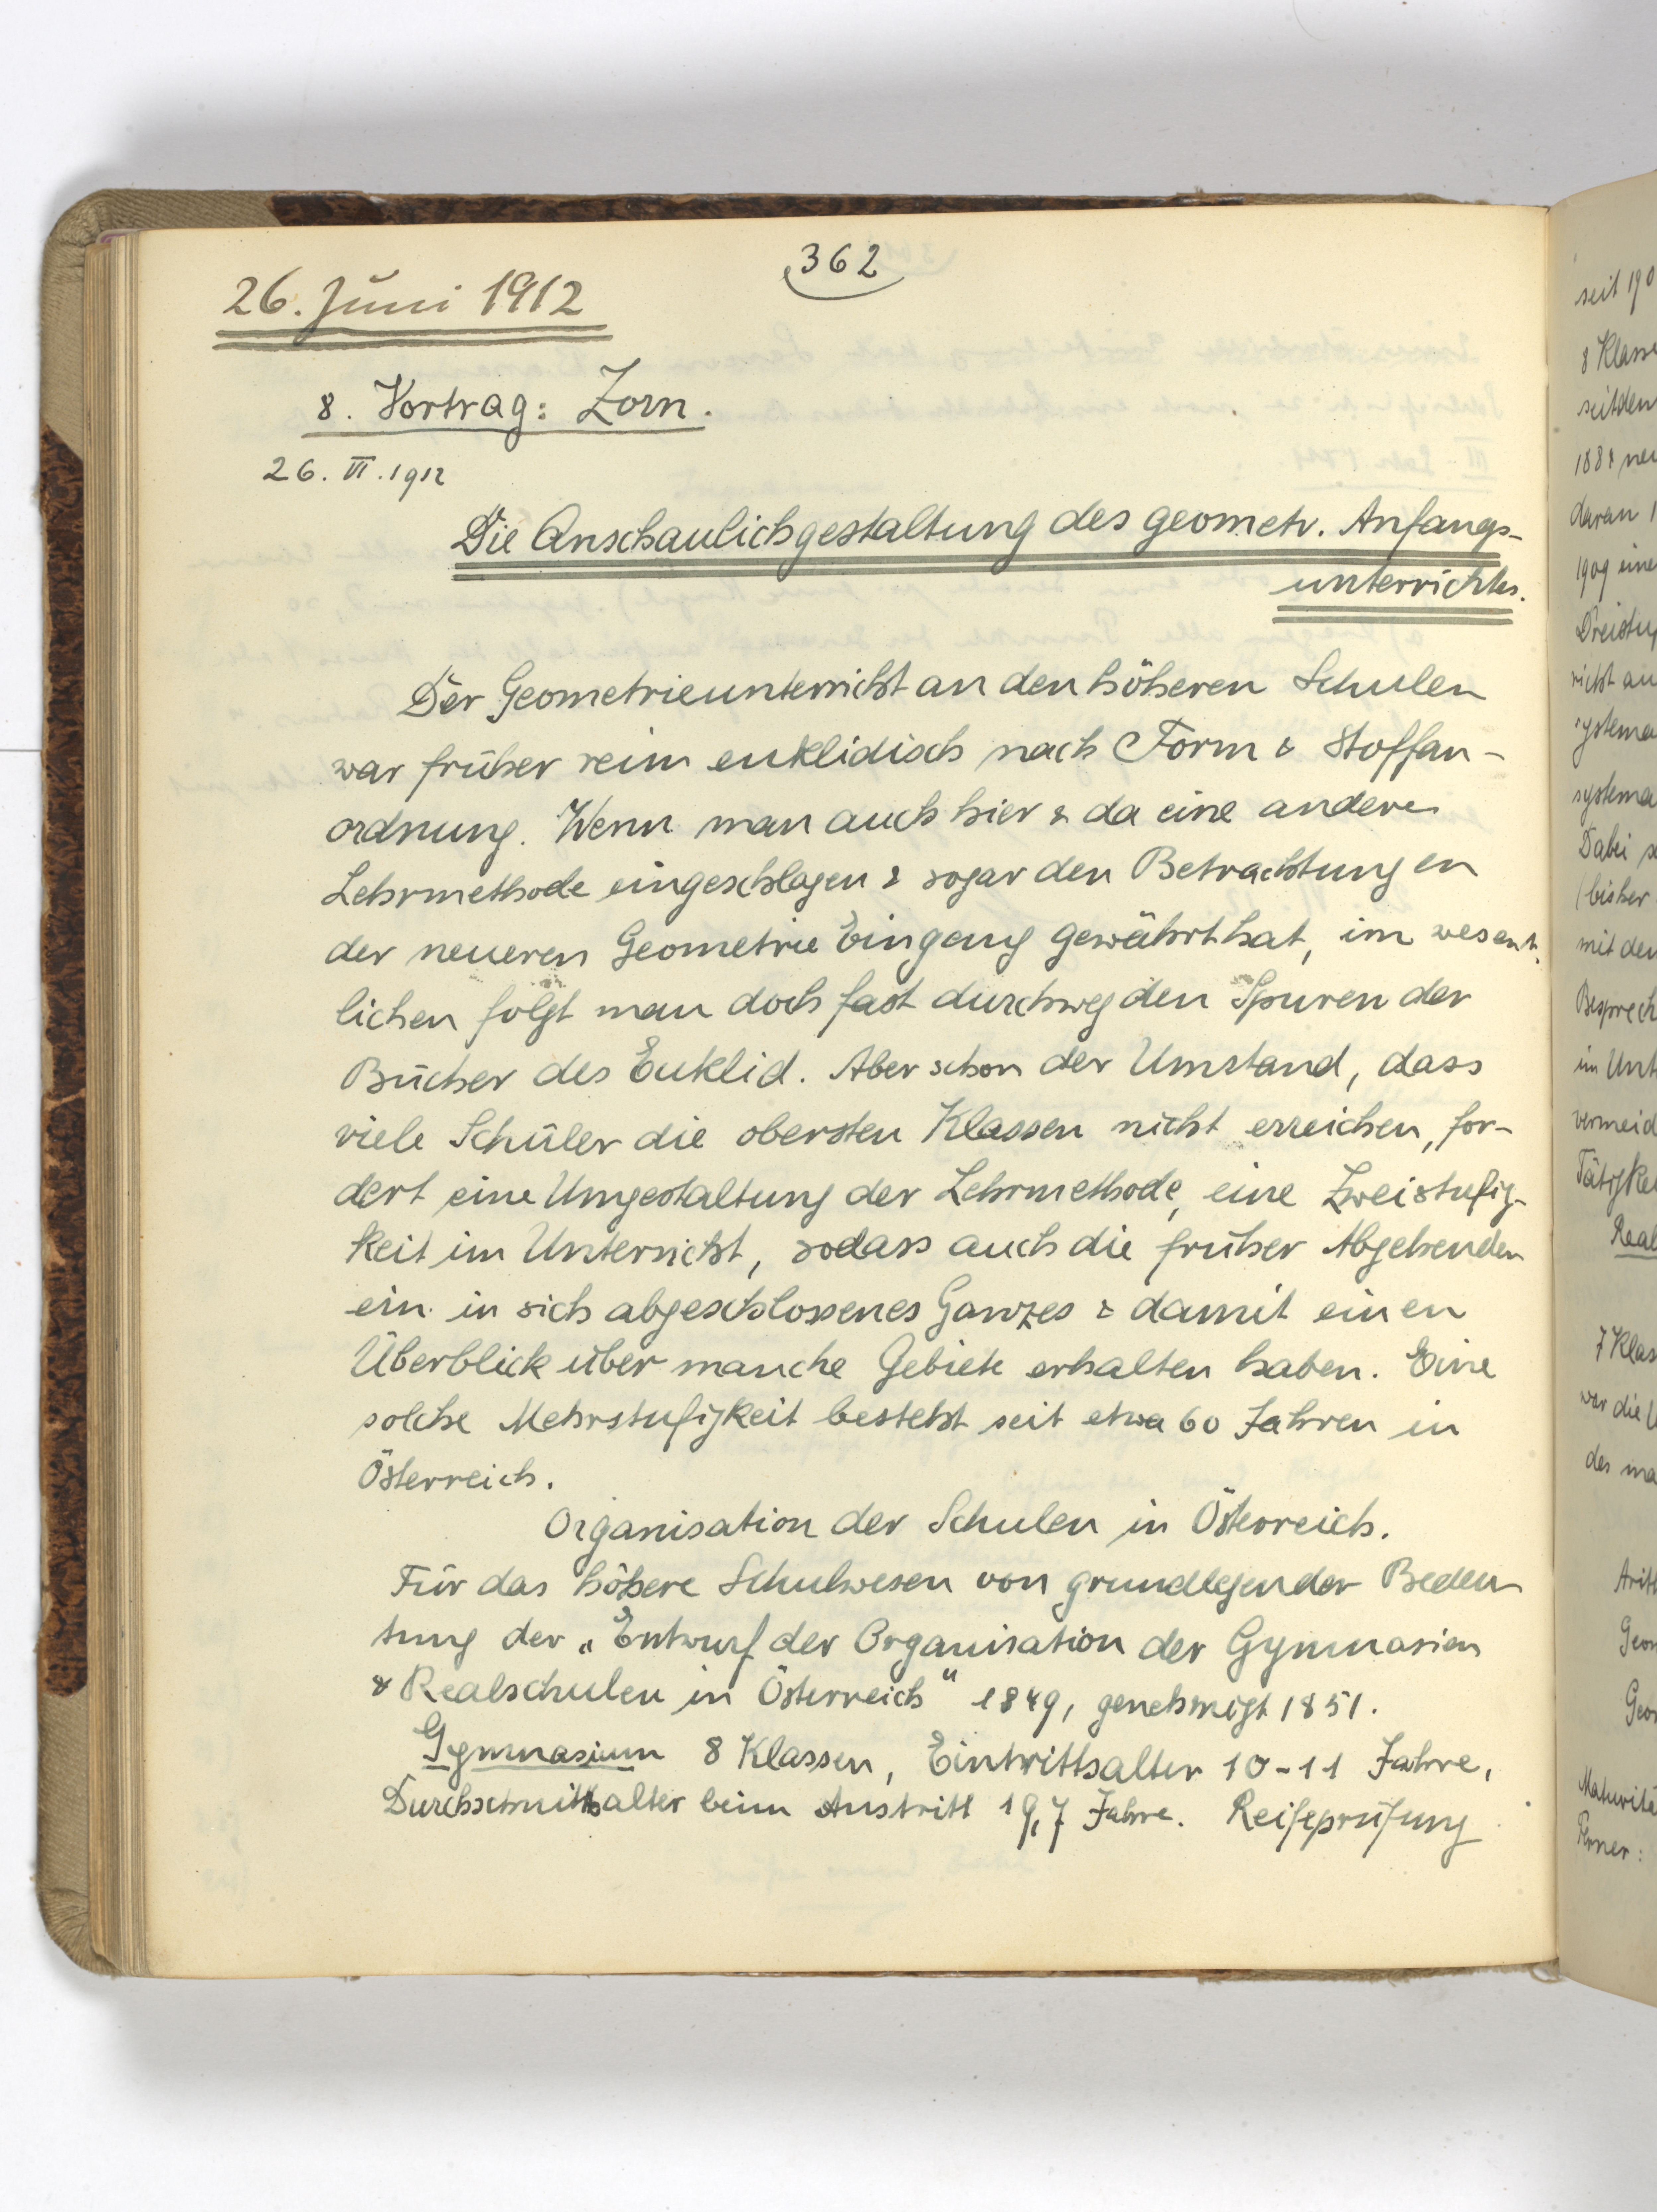 362
26. Juni 1912
8. Vortrag: Zorn.
26. VI. 1912
Die Anschaulichgestaltung des geometr. Anfangs-
unterrichtes.
Der Geometrieunterricht an den höheren Schulen
war früher rein euklidisch nach Form & Stoffan-
ordnung. Wenn man auch hier & da eine andere
Lehrmethode eingeschlagen & sogar den Betrachtungen
der neueren Geometrie Eingang gewährt hat, im wesent-
lichen folgt man doch fast durchweg den Spuren der
Bücher des Euklid. Aber schon der Umstand, dass
viele Schüler die obersten Klassen nicht erreichen, for-
dert eine Umgestaltung der Lehrmethode, eine Zweistufig-
keit im Unterricht, sodass auch die früher Abgehenden
ein in sich abgeschlossenes Ganzes & damit einen
Überblick über manche Gebiete erhalten haben. Eine
solche Mehrstufigkeit besteht seit etwa 60 Jahren in
Österreich.
Organisation der Schulen in Österreich.
Für das höhere Schulwesen von grundlegender Bedeu-
tung der „Entwurf der Organisation der Gymnasien
& Realschulen in Österreich" 1849, genehmigt 1851.
Gymnasium 8 Klassen, Eintrittsalter 10-11 Jahre,
Durchschnittsalter beim Austritt 19,7 Jahre. Reifeprüfung
seit 190
8 Klasse
seitdem
daran
1909 eine
richt an
systema
Dabei
(bisher
mit den
Besprech
im Unt
vermeid
Real
7 Klas
war die
des ma
Arith
Geom
Geom
Maturitä
Ferner: